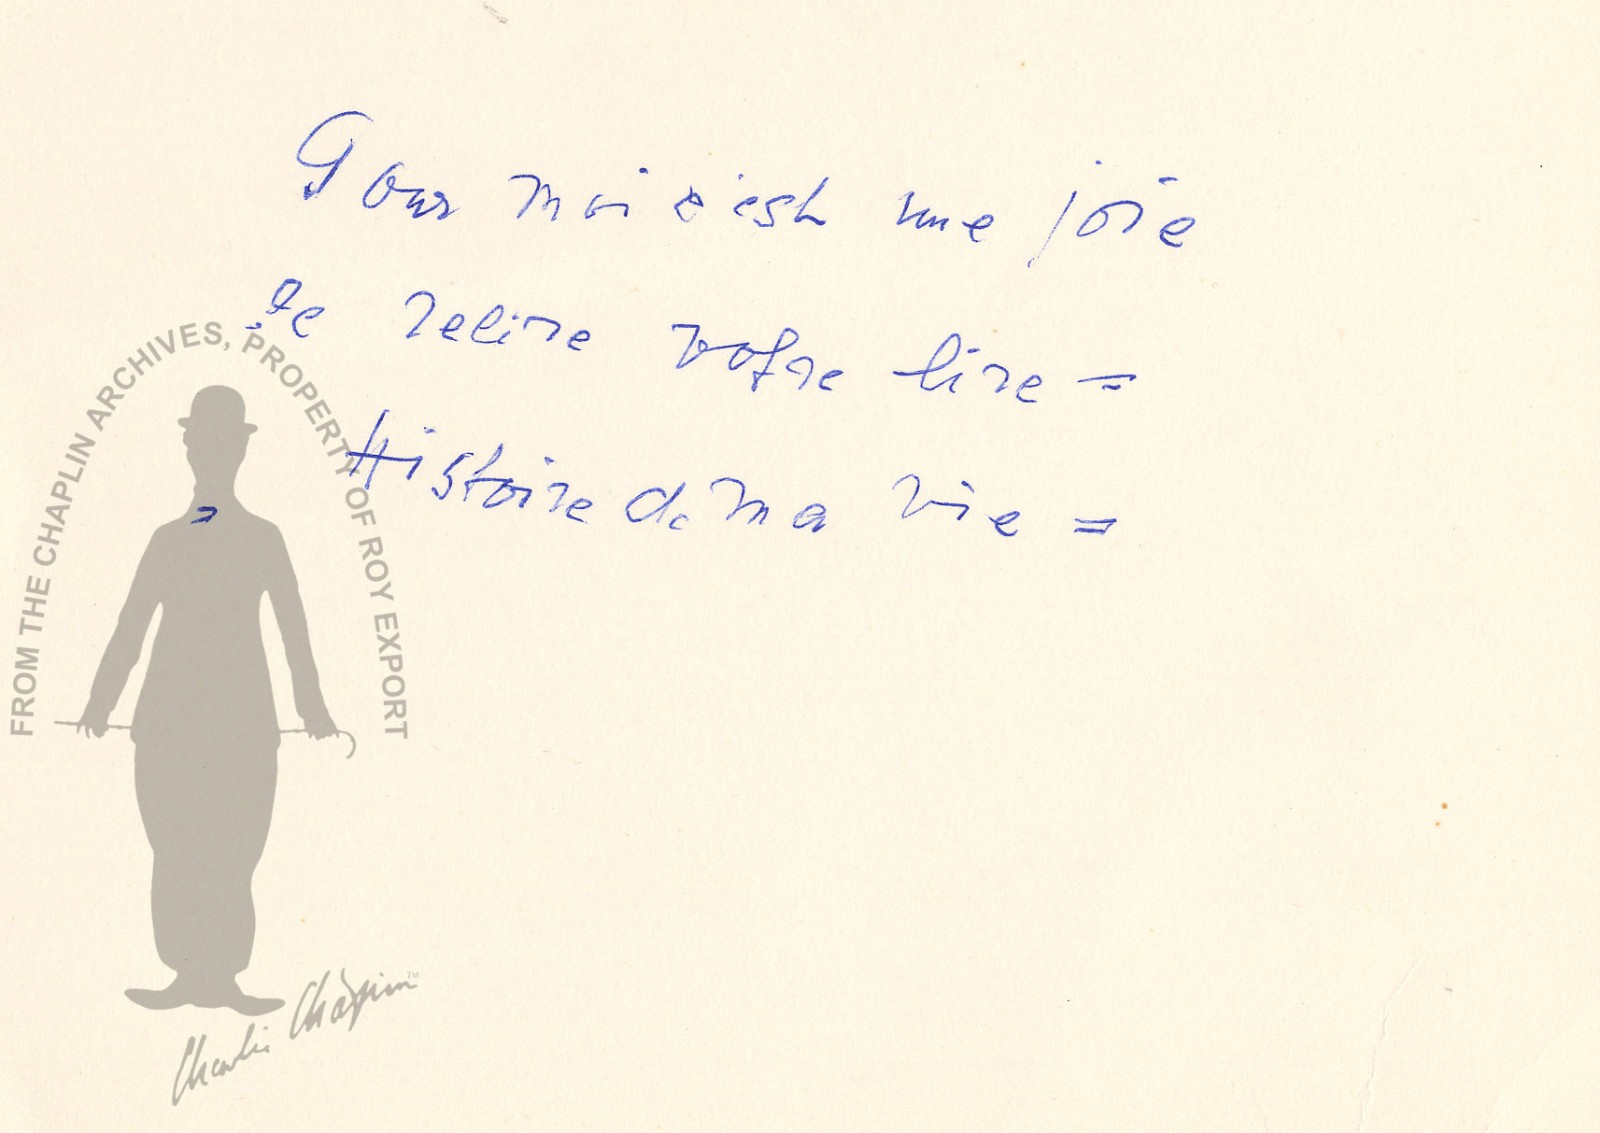 Pour moi c'est une joie
de relire votre livre =
Histoire de ma vie =
FROM THE CHAPLIN ARCHIVES, PROPERTY OF ROY EXPORT
Charlie Chaplin™